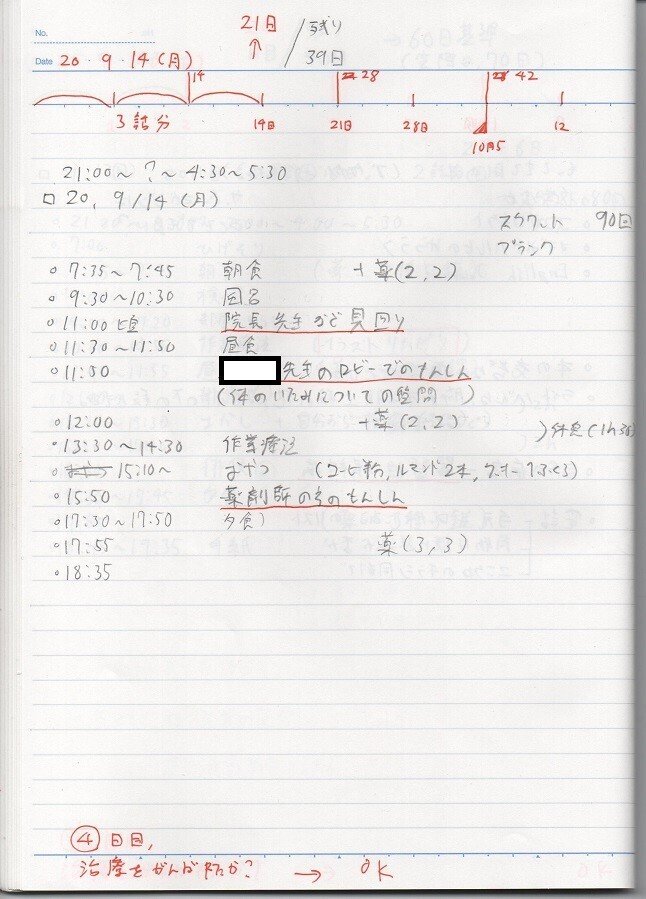 21日 / 残り
↑ 39日
No.
Date 20・9・14(月)
14 28 42
3 話分 14日 21日 28日 10月5 12
21:00～?～4:30～5:30
□ 20, 9/14(月)
スクワット 90回
プランク
○ 7:35～7:45 朝食 +薬(2,2)
○ 9:30～10:30
○ 11:00頃 院長先生など見回り
○ 11:30～11:50 昼食
○ 11:50 先生のロビーでのもんしん
(体のいたみについての質問)
○ 12:00 +薬(2,2)
)休息(1h30)
○ 13:30～14:30 作業療法
○ おやつ 15:10～ おやつ (コーヒー粉,ルマンド2本,クッキー1ふくろ)
○ 15:50 薬剤師の方のもんしん
○ 17:30～17:50 夕食)
○ 17:55 薬(3,3)
○ 18:35
④日目,
治療をがんばれたか? → OK